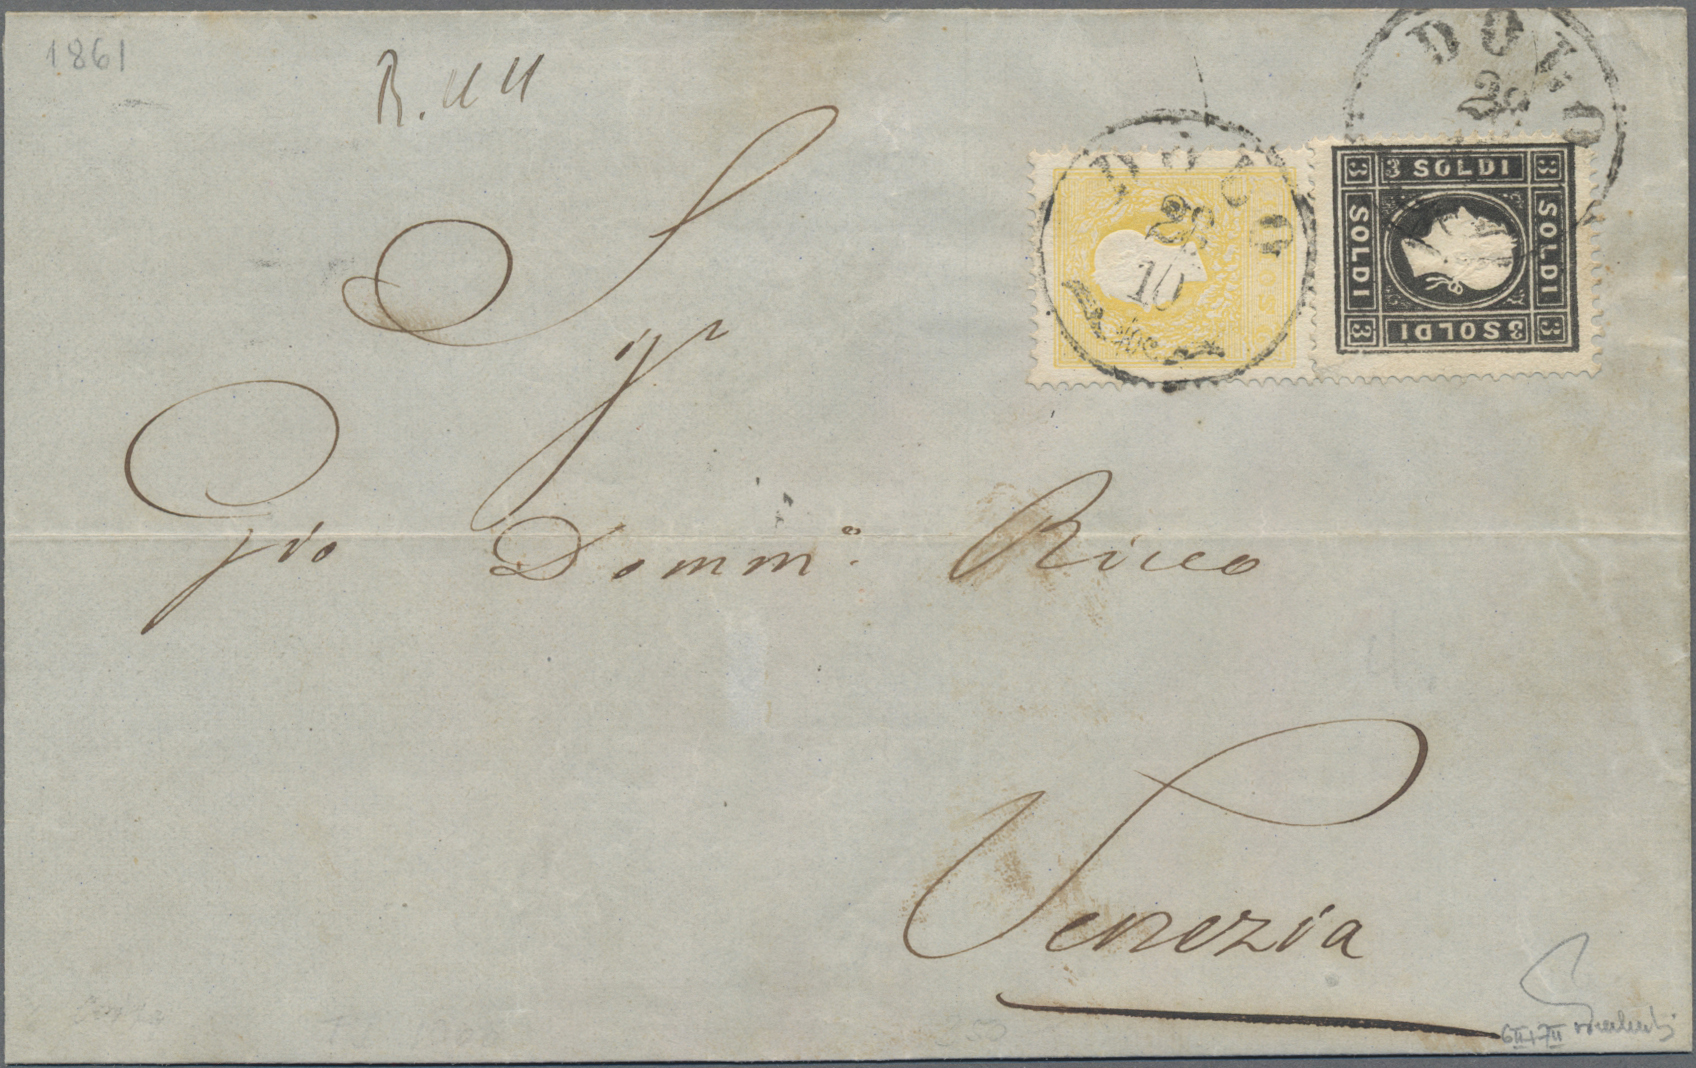 1861
DOLO
28
DOLO
28
10
3 SOLDI
SOLDI
SOLDI
3 SOLDI
3
3
3
SOLDI
Sigr
Gio Domm.º Ricco
Venezia